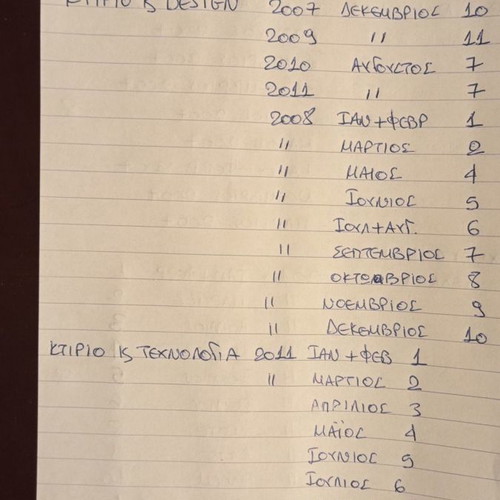 ΚΤΙΡΙΟ & DESIGN 2007 ΔΕΚΕΜΒΡΙΟΣ 10
2009 〃 11
2010 ΑΥΓΟΥΣΤΟΣ 7
2011 〃 7
2008 ΙΑΝ + ΦΕΒΡ 1
〃 ΜΑΡΤΙΟΣ 2
〃 ΜΑΙΟΣ 4
〃 ΙΟΥΝΙΟΣ 5
〃 ΙΟΥΛ + ΑΥΓ. 6
〃 ΣΕΠΤΕΜΒΡΙΟΣ 7
〃 ΟΚΤΩΒΡΙΟΣ 8
〃 ΝΟΕΜΒΡΙΟΣ 9
〃 ΔΕΚΕΜΒΡΙΟΣ 10
ΚΤΙΡΙΟ & ΤΕΧΝΟΛΟΓΙΑ 2011 ΙΑΝ + ΦΕΒ 1
〃 ΜΑΡΤΙΟΣ 2
ΑΠΡΙΛΙΟΣ 3
ΜΑΪΟΣ 4
ΙΟΥΝΙΟΣ 5
ΙΟΥΛΙΟΣ 6